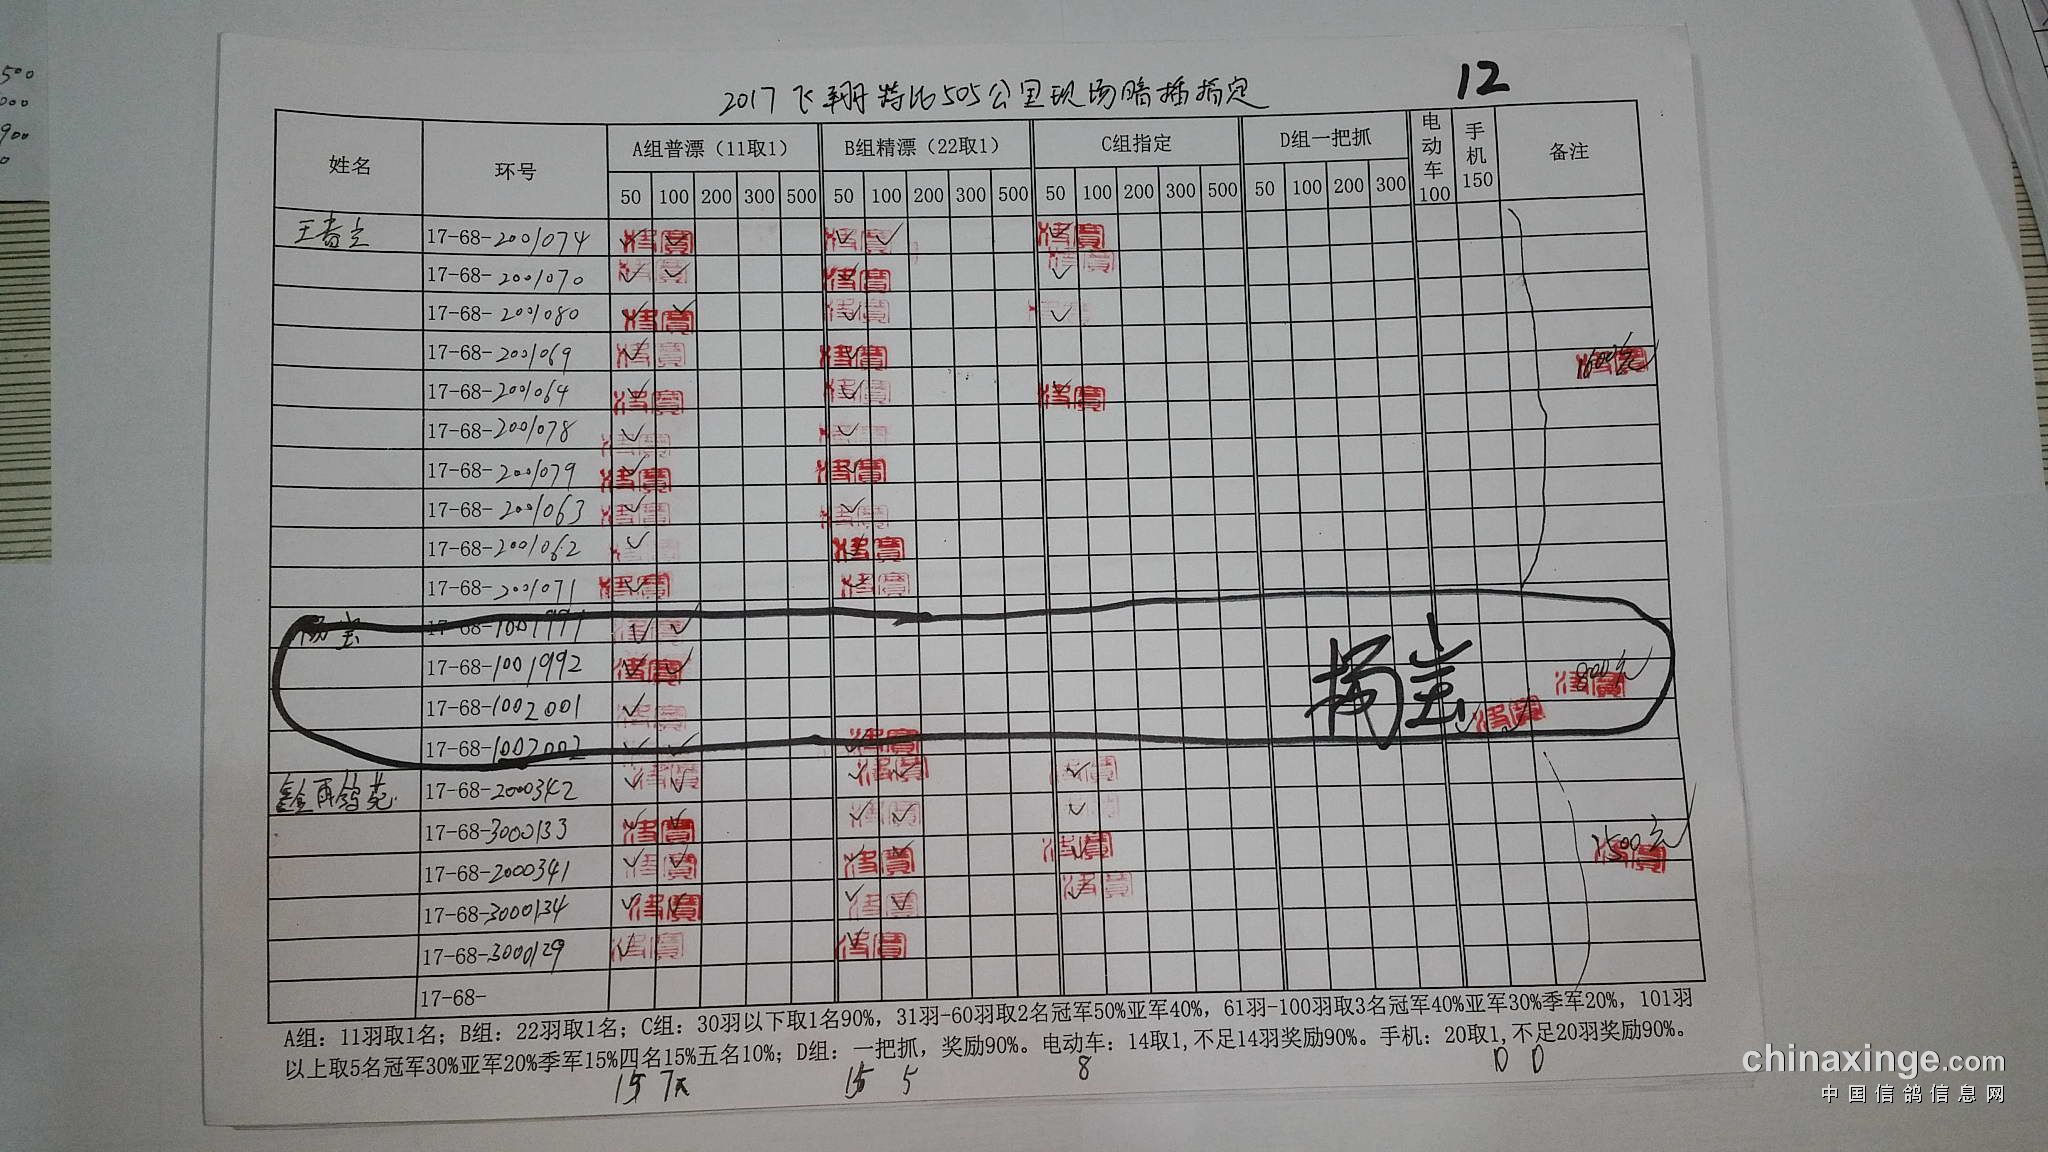 500
000
900
0
12
2017飞翔特比505公里现场暗插指定
姓名 环号 A组普漂（11取1） B组精漂（22取1） C组指定 D组一把抓 电动车100 手机150 备注
50 100 200 300 500 50 100 200 300 500 50 100 200 300 500 50 100 200 300
17-68-2001074 ✓ ✓ ✓ ✓ ✓
17-68-2001070 ✓ ✓ ✓ ✓
17-68-2001080 ✓ ✓ ✓ ✓
17-68-2001069 ✓ ✓
17-68-2001064 ✓ ✓ ✓
17-68-2001078 ✓ ✓
17-68-2001079 ✓ ✓
17-68-2001063 ✓ ✓
17-68-2001062 ✓ ✓
17-68-2001071 ✓ ✓
杨宝 17-68-1001991 ✓ ✓
17-68-1001992 ✓ ✓ 800元
17-68-1002001 ✓ 杨宝
17-68-1002002 ✓ ✓ ✓
鑫再鸽苑 17-68-2000342 ✓ ✓ ✓ ✓ ✓
17-68-3000133 ✓ ✓ ✓ ✓ ✓
17-68-2000341 ✓ ✓ ✓ ✓ ✓ 2500元
17-68-3000134 ✓ ✓ ✓ ✓ ✓
17-68-3000129 ✓ ✓
17-68-
A组：11羽取1名；B组：22羽取1名；C组：30羽以下取1名90%，31羽-60羽取2名冠军50%亚军40%，61羽-100羽取3名冠军40%亚军30%季军20%，101羽
以上取5名冠军30%亚军20%季军15%四名15%五名10%；D组：一把抓，奖励90%。电动车：14取1,不足14羽奖励90%。手机：20取1,不足20羽奖励90%。
15 15 5 8 0 0
chinaxinge.com
中国信鸽信息网